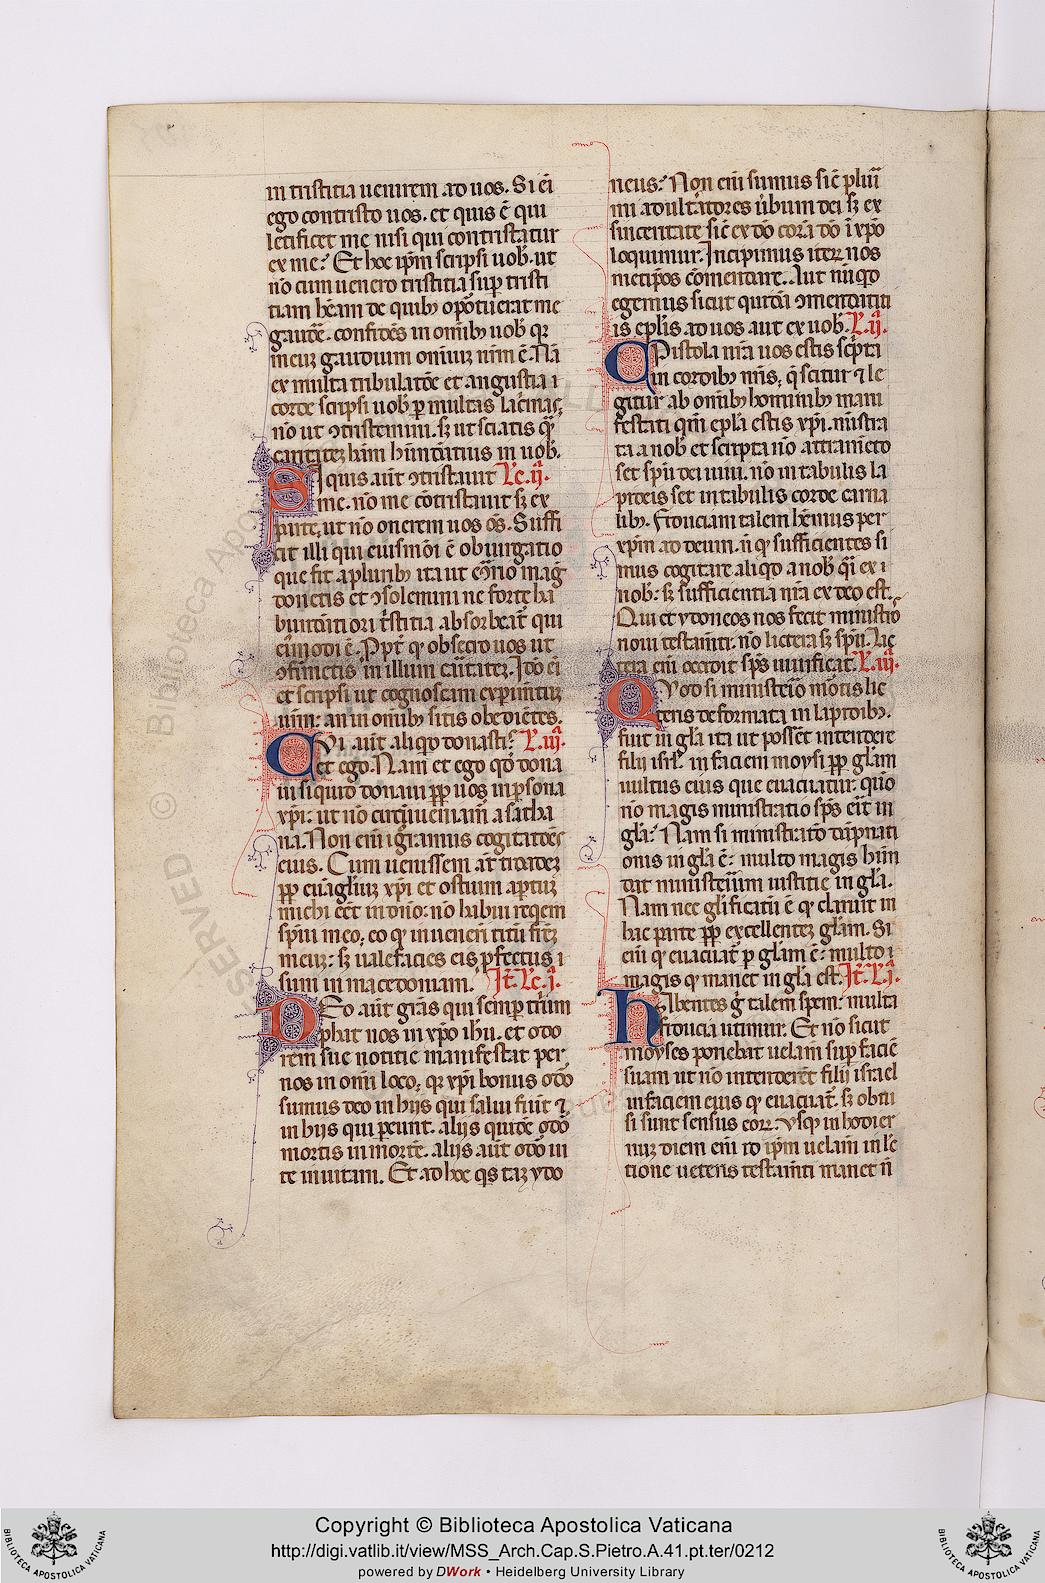 in tristitia uenirem ad uos. Si ei
ego contristo uos. et quis ē qui
letificet me nisi qui contristatur
ex me? Et hoc ip̄m scripsi uob̄. ut
nō cum uenero tristitia suꝑ tristi
tiam hēam de quibꝫ oportuerat me
gaudē. confidēs in om̄ibꝫ uob̄ qꝛ
meuꝫ gaudium om̄iuꝫ urm̄ ē. Nā
ex multa tribulatōe et angustia i
corde scripsi uob̄ ꝑ multas lac̄mas;
nō ut ꝯtristemini. sꝫ ut sciatis qm̄
caritateꝫ hām hūndātius in uob̄.
SI quis aut̄ ꝯtristauit Lc̄. ij.
me. nō me cōtristauit sꝫ ex
parte, ut nō onerem uos oēs. Suffi
cit illi qui eiusmōi ē obiurgatio
que fit a pluribꝫ ita ut e9rio maḡ
donetis et ꝯsolemini ne forte ha
būndātiori t̄stitia absorbeat̄ qui
ei9modi ē. Ppt̄ qꝫ obsecro uos ut
ꝯfirmetis in illum cāritateꝫ. Ido ei
et scripsi ut cognoscam experimtuꝫ
urm̄: an in om̄ibꝫ sitis obediētes.
CVi aut̄ aliqͥd donastis L. iij.
et ego. Nam et ego qd̄ dona
ui si quid donaui ꝓꝑ uos in ꝑsona
xp̄i: ut nō circūueniam̄ a satha
na. Non eni igramus cogitatōes
eius. Cum uenissem at̄ troadeꝫ
ꝓꝑ euāgliuꝫ xp̄i et ostium aꝑtuꝫ
michi eēt in dn̄o: nō habui reqem
sp̄ui meo, eo qꝫ in uenerī titū fr̄eꝫ
meuꝫ: sꝫ ualefacies eis ꝓfectus i
sum in macedoniam. It̄. Lc̄. j.
DEo aut̄ grās qui semꝑ triūm
phat nos in xp̄o ihū. et odo
rem sue notitie manifestat per
nos in om̄i loco; qꝛ xp̄i bonus odō
sumus deo in hijs qui salui fiūt ⁊
in hijs qui ꝑeunt. alijs quidē odō
mortis in mortē. alijs aut̄ odō ui
te in uitam. Et ad hoc q̄s taꝫ ydo
neus? Non eni sumus sic̄ pluri
mi adult̄atores ūbum dei sꝫ ex
sinceritate sic̄ ex dō cora dō i xp̄o
loquimur. Incipimus iteꝝ nos
metip̄os cōmendare. Aut nūqd
egemus sicut quidā ꝯmendatiti
is epl̄is ad uos aut ex uob̄. L. ij.
EPistola nr̄a uos estis sc̄pta
in cordibꝫ nr̄is; q̄ scitur ⁊ le
gitur ab om̄ibꝫ hominibꝫ mani
festati qm̄ epl̄a estis xp̄i. ministra
ta a nob̄ et scripta nō attramēto
set sp̄u dei uiui. nō in tabulis la
pideis set in tabulis cordis carna
libꝫ. Fiduciam talem hēmus per
xp̄m ad deum. n̄ qꝫ sufficientes si
mus cogitare aliqͥd a nob̄ q̄i ex i
nob̄: sꝫ sufficientia nr̄a ex deo est.
Qui et ydoneos nos fecit ministro
noui testamti. nō lictera sꝫ sp̄u. Lic
tera eni occidit sp̄s uiuificat. L. iij.
QVod si ministeriō mōtis lic
teris deformata in lapidibꝫ.
fuit in gl̄a ita ut possēt intendere
filij isrl̄ in faciem moysi ꝓꝑ gl̄am
uultus eius que euacuatur: quō
nō magis ministratio sp̄s erit in
gl̄a? Nam si ministratō dāpnati
onis in gl̄a ē: multo magis hūn
dat ministerium iustitie in gl̄a.
Nam nec gl̄ificatū ē qꝫ claruit in
hac parte ꝓꝑ excellenteꝫ gl̄am. Si
eni qꝫ euacuat̄ ꝑ gl̄am ē: multo i
magis qꝫ manet in gl̄a est. It̄. L. j.
HAbentes g̊ talem spem: multa
fiducia utimur. Et nō sicut
moyses ponebat uelam̄ suꝑ faciē
suam ut nō intenderēt filij israel
in faciem eius qꝫ euacuat̄. sꝫ obtu
si sunt sensus eoꝝ. vsqꝫ in hodier
nuꝫ diem eni id ip̄m uelam̄ in lec
tione ueteris testamti manet n̄
Copyright © Biblioteca Apostolica Vaticana
http://digi.vatlib.it/view/MSS_Arch.Cap.S.Pietro.A.41.pt.ter/0212
powered by DWork • Heidelberg University Library